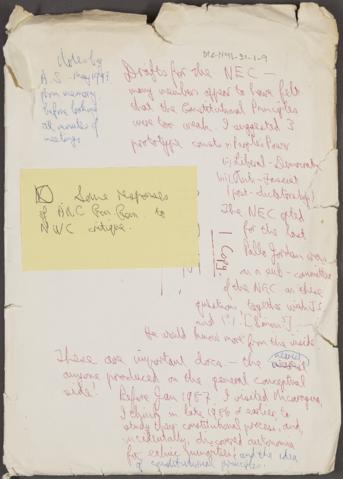 Notes by
A.S. May 1993
from memory
before looking
at minutes of
meetings
Drafts for the NEC —
many members appear to have felt
that the Constitutional Principles
were too weak. I suggested 3
prototype const.s
(i) Peoples Power
(ii) Liberal-Democratic
(iii) Anti-Fascist
(post-dictatorship)
The NEC opted
for the last
Pallo Jordan
on a sub-committee
of the NEC on these
questions, together with J.S.
and
He would know more from the inside
1 Copy
Some responses
of ANC to
NWC critique.
These are important docs — the nearest
anyone produced on the general conceptual
side!
Before Jan 1987. I visited Nicaragua
I think in late 1986 or earlier to
study their constitutional process, and,
incidentally, discovered autonomy
for ethnic minorities, and the idea
of constitutional principles.